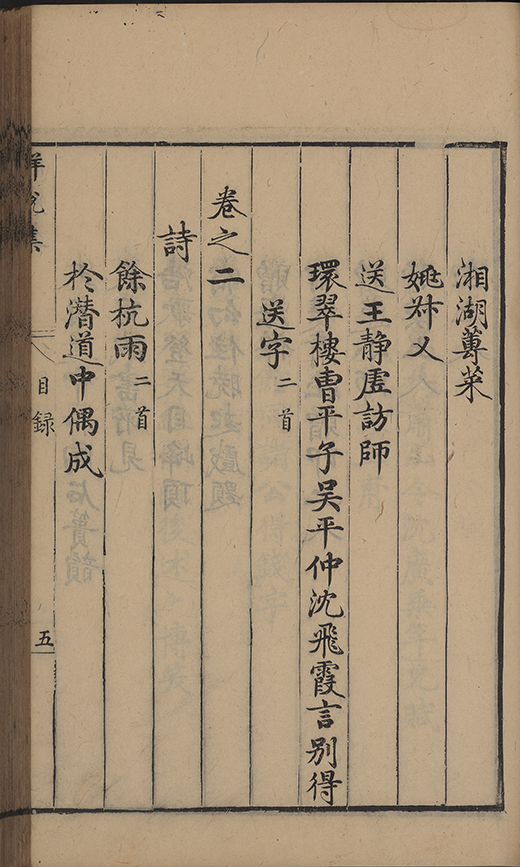 湘湖蓴菜
姚㳤乂
送王靜虛訪師
環翠樓曹平子吳平仲沈飛霞言別得
送字二首
卷之二
詩
餘杭雨二首
於潛道中偶成
解脫集
目録
五